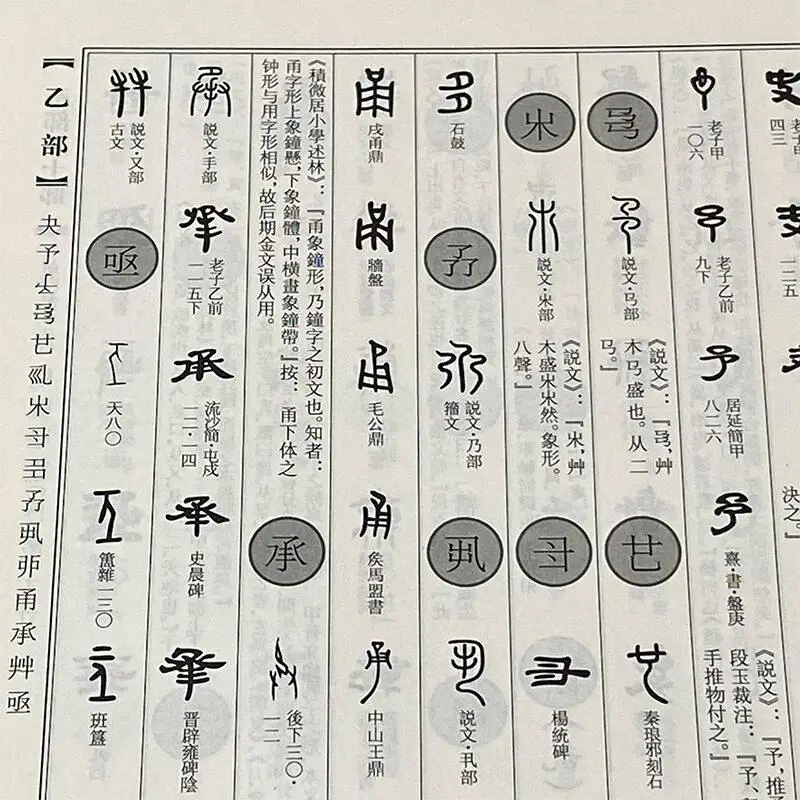 四三
一二五
決之。』
老子甲
一〇六
老子乙前
九下
居延簡甲
八二六
熹·書·盤庚
《説文》:『予,推予
段玉裁注:『予、
手推物付之。』
説文·𢎘部
《説文》:『,艸
木𢎘盛也。从二
𢎘。』
秦琅邪刻石
𣎵
説文·𣎵部
《説文》:『𣎵,艸
木盛𣎵𣎵然。象形。
八聲。』
楊統碑
石鼓
説文·乃部
籀文
説文·丮部
戌甬鼎
牆盤
毛公鼎
矦馬盟書
中山王鼎
《積微居小學述林》:『甬象鐘形,乃鐘字之初文也。知者:
甬字形上象鐘懸,下象鐘體,中横畫象鐘帶。』按: 甬下体之
钟形与用字形相似,故后期金文误从用。
承
後下三〇·
一二
説文·手部
老子乙前
一一五下
流沙簡·屯戍
一二·一四
史晨碑
晋辟雍碑陰
説文·又部
古文
亟
天八〇
簠雜一三〇
班簋
【乙部】
夬予𣎵甬承艸亟